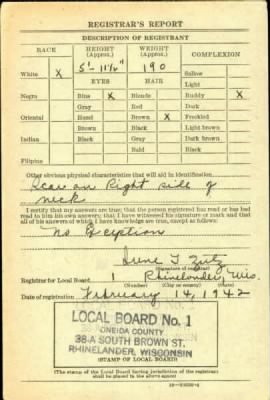 REGISTRAR'S REPORT
DESCRIPTION OF REGISTRANT
RACE HEIGHT (Approx.) WEIGHT (Approx.) COMPLEXION
White X 5'-11½" 190 Sallow
EYES HAIR Light
Negro Blue X Blonde Ruddy X
Gray Red Dark
Oriental Hazel Brown X Freckled
Brown Black Light brown
Indian Black Gray Dark brown
Bald Black
Filipino
Other obvious physical characteristics that will aid in identification
Scar on Right side of
neck
I certify that my answers are true; that the person registered has read or has had
read to him his own answers; that I have witnessed his signature or mark and that
all of his answers of which I have knowledge are true, except as follows:
No Exception
(Signature of registrar)
Registrar for Local Board 1 Rhinelander, Wis.
(Number) (City or county) (State)
Date of registration February 14, 1942
LOCAL BOARD No. 1
ONEIDA COUNTY
38-A SOUTH BROWN ST.
RHINELANDER, WISCONSIN
(STAMP OF LOCAL BOARD)
(The stamp of the Local Board having jurisdiction of the registrant
shall be placed in the above space.)